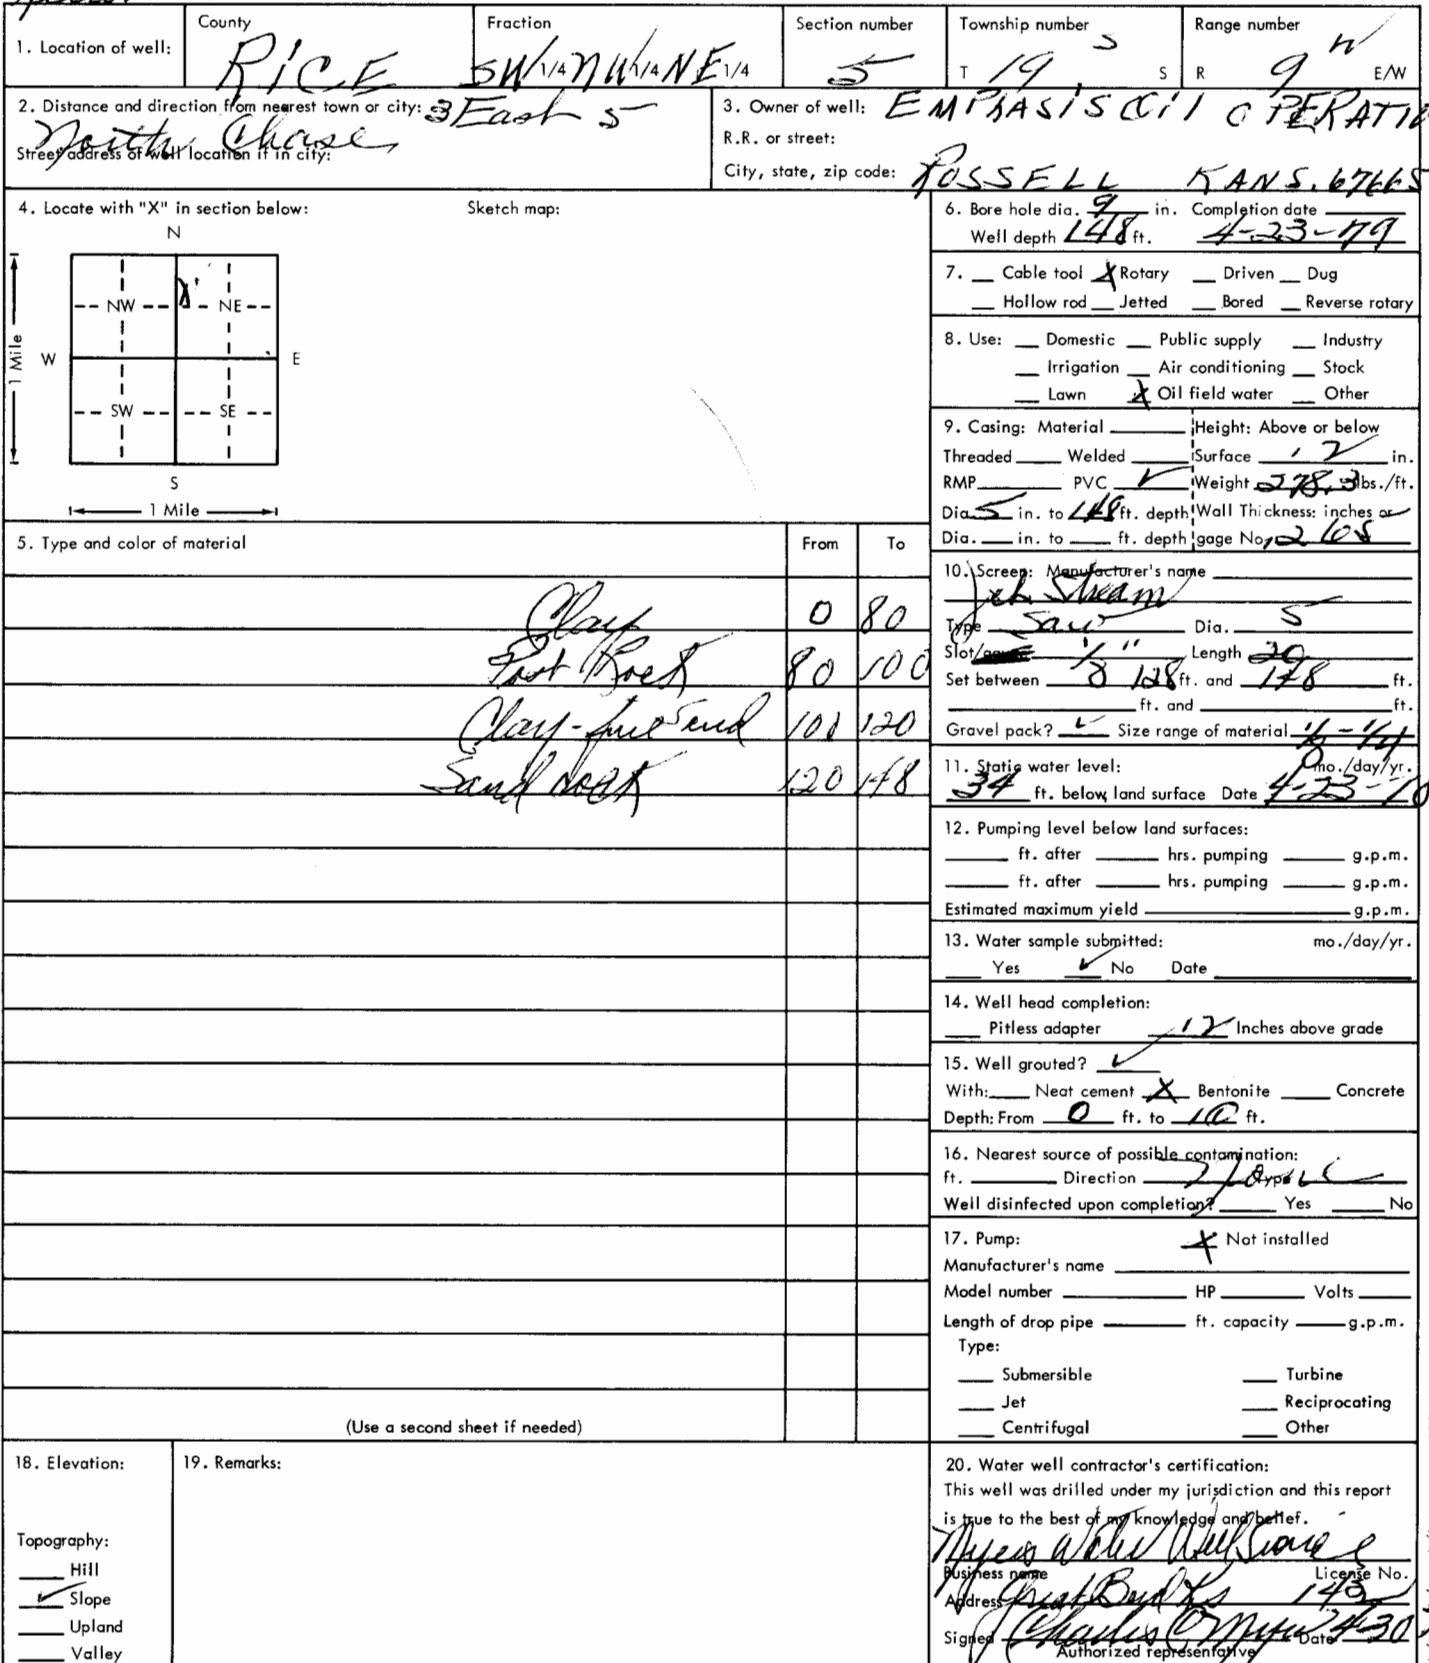 1. Location of well:
County
RICE
Fraction
SW 1/4 NW 1/4 NE 1/4
Section number
5
Township number
T 19 S S
Range number
R 9 W E/W
2. Distance and direction from nearest town or city: 3 East 5
North Chase
Street address of well location if in city:
3. Owner of well: EMPHASIS OIL OPERATIO
R.R. or street:
City, state, zip code: ROSSELL KANS. 67665
4. Locate with "X" in section below:
Sketch map:
N
NW NE
X
W E
1 Mile
SW SE
S
1 Mile
5. Type and color of material From To
Clay 0 80
Post Rock 80 100
Clay-fine Sand 100 120
Sand rock 120 148
(Use a second sheet if needed)
6. Bore hole dia. 9 in. Completion date
Well depth 148 ft. 4-23-79
7. Cable tool X Rotary Driven Dug
Hollow rod Jetted Bored Reverse rotary
8. Use: Domestic Public supply Industry
Irrigation Air conditioning Stock
Lawn X Oil field water Other
9. Casing: Material Height: Above or below
Threaded Welded Surface 12 in.
RMP PVC ✓ Weight 278.3 lbs./ft.
Dia. 5 in. to 148 ft. depth Wall Thickness: inches or
Dia. in. to ft. depth gage No.
10. Screen: Manufacturer's name
Jet Stream
Type Saw Dia. 5
Slot 1/8" Length 20
Set between 128 ft. and 148 ft.
ft. and ft.
Gravel pack? ✓ Size range of material 1/8-1/4
11. Static water level: mo./day/yr.
34 ft. below land surface Date 4-23-
12. Pumping level below land surfaces:
ft. after hrs. pumping g.p.m.
ft. after hrs. pumping g.p.m.
Estimated maximum yield g.p.m.
13. Water sample submitted: mo./day/yr.
Yes ✓ No Date
14. Well head completion:
Pitless adapter 12 Inches above grade
15. Well grouted? ✓
With: Neat cement X Bentonite Concrete
Depth: From 0 ft. to 10 ft.
16. Nearest source of possible contamination:
ft. Direction None Type
Well disinfected upon completion? Yes No
17. Pump: X Not installed
Manufacturer's name
Model number HP Volts
Length of drop pipe ft. capacity g.p.m.
Type:
Submersible Turbine
Jet Reciprocating
Centrifugal Other
18. Elevation:
Topography:
Hill
✓ Slope
Upland
Valley
19. Remarks:
20. Water well contractor's certification:
This well was drilled under my jurisdiction and this report
is true to the best of my knowledge and belief.
Myers Water Well Service
Business name License No.
Address Great Bend Ks 143
Signed Charles C Myers Date 4-30
Authorized representative